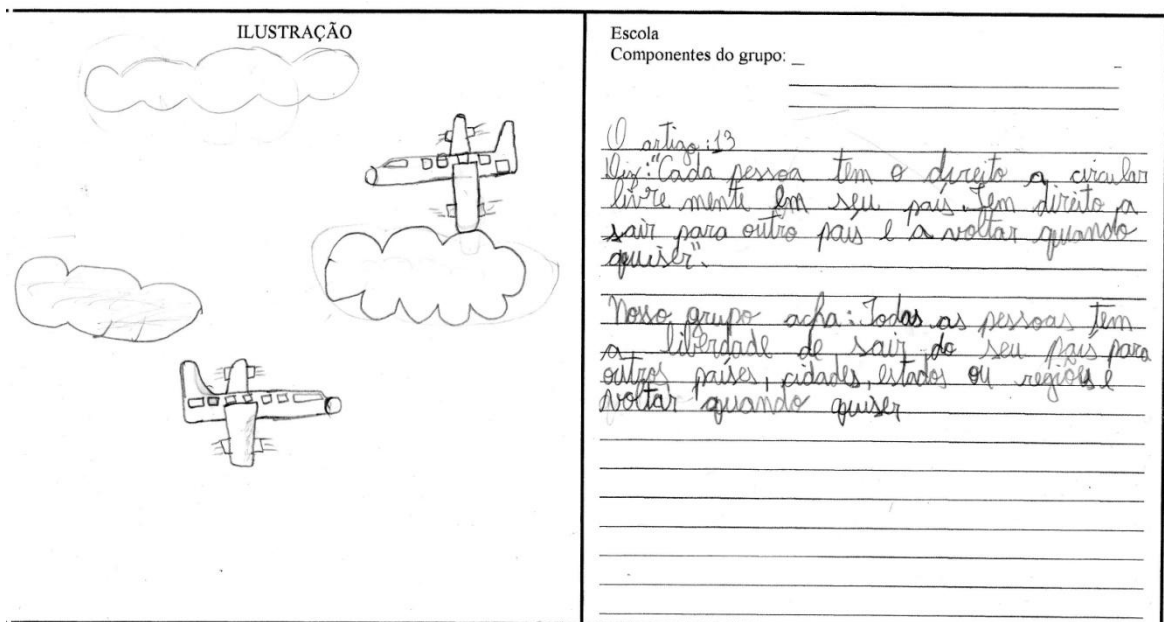 ILUSTRAÇÃO
Escola
Componentes do grupo:
O artigo:13
Diz:"Cada pessoa tem o direito a circular
livre mente em seu país. Tem direito a
sair para outro país e a voltar quando
quiser".
Nosso grupo acha: Todas as pessoas tem
a liberdade de sair do seu país para
outros países, cidades, estados ou regiões e
voltar quando quiser